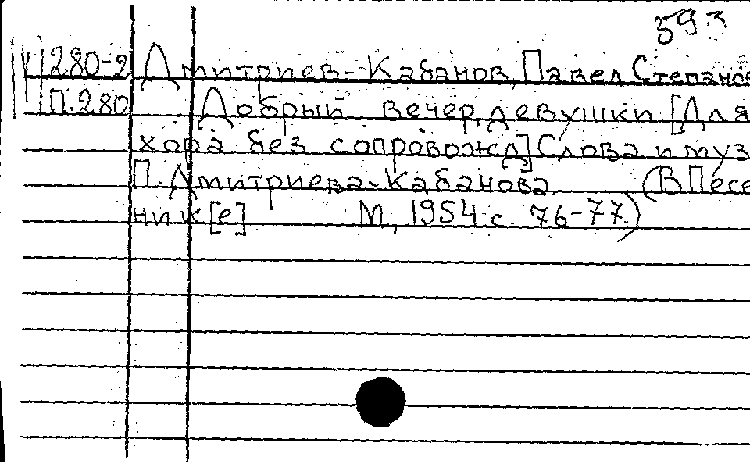 593
V 280-2 Дмитриев-Кабанов, Павел Степанов
П.280 Добрый вечер, девушки [Для
хора без сопровожд] Слова и муз
П. Дмитриева-Кабанова (В Песе
нник[е] М, 1954 с 76-77.)